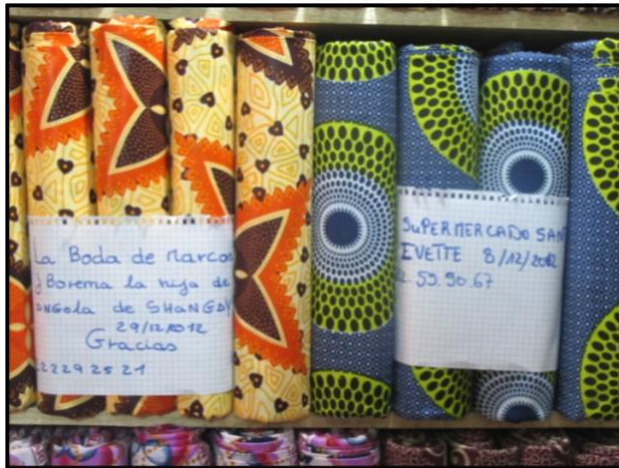 La Boda de Marcos
y Borema la hija de
Angola de SHANGAY
29/12/2012
Gracias
222292521
SUPERMERCADO SAN
IVETTE 8/12/2012
2.59.90.67